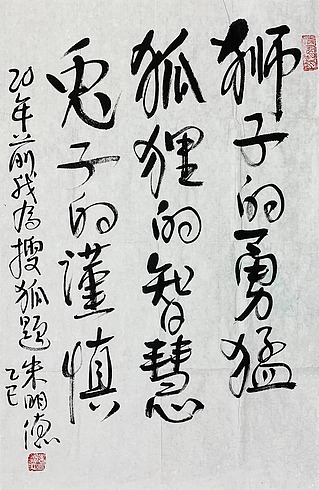 狮子的勇猛
狐狸的智慧
兎子的谨慎
20年前我为搜狐题 朱明德
乙巳